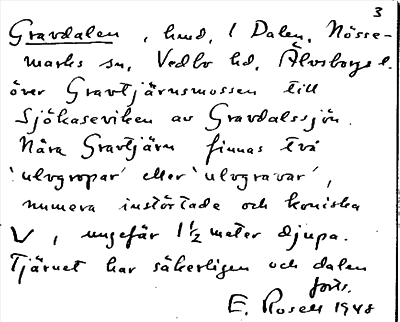 3
Gravdalen, hmd, 1 Dalen, Nösse-
marks sn, Vedbo hd, Älvsborgs l.
över Gravtjärnsmossen till
Sjökaseviken av Gravdalssjön.
Nära Gravtjärn finnas två
'ulvgropar' eller 'ulvgravar',
numera instörtade och koniska
V, ungefär 1½ meter djupa.
Tjärnet har säkerligen och dalen
forts.
E. Rosell 1948